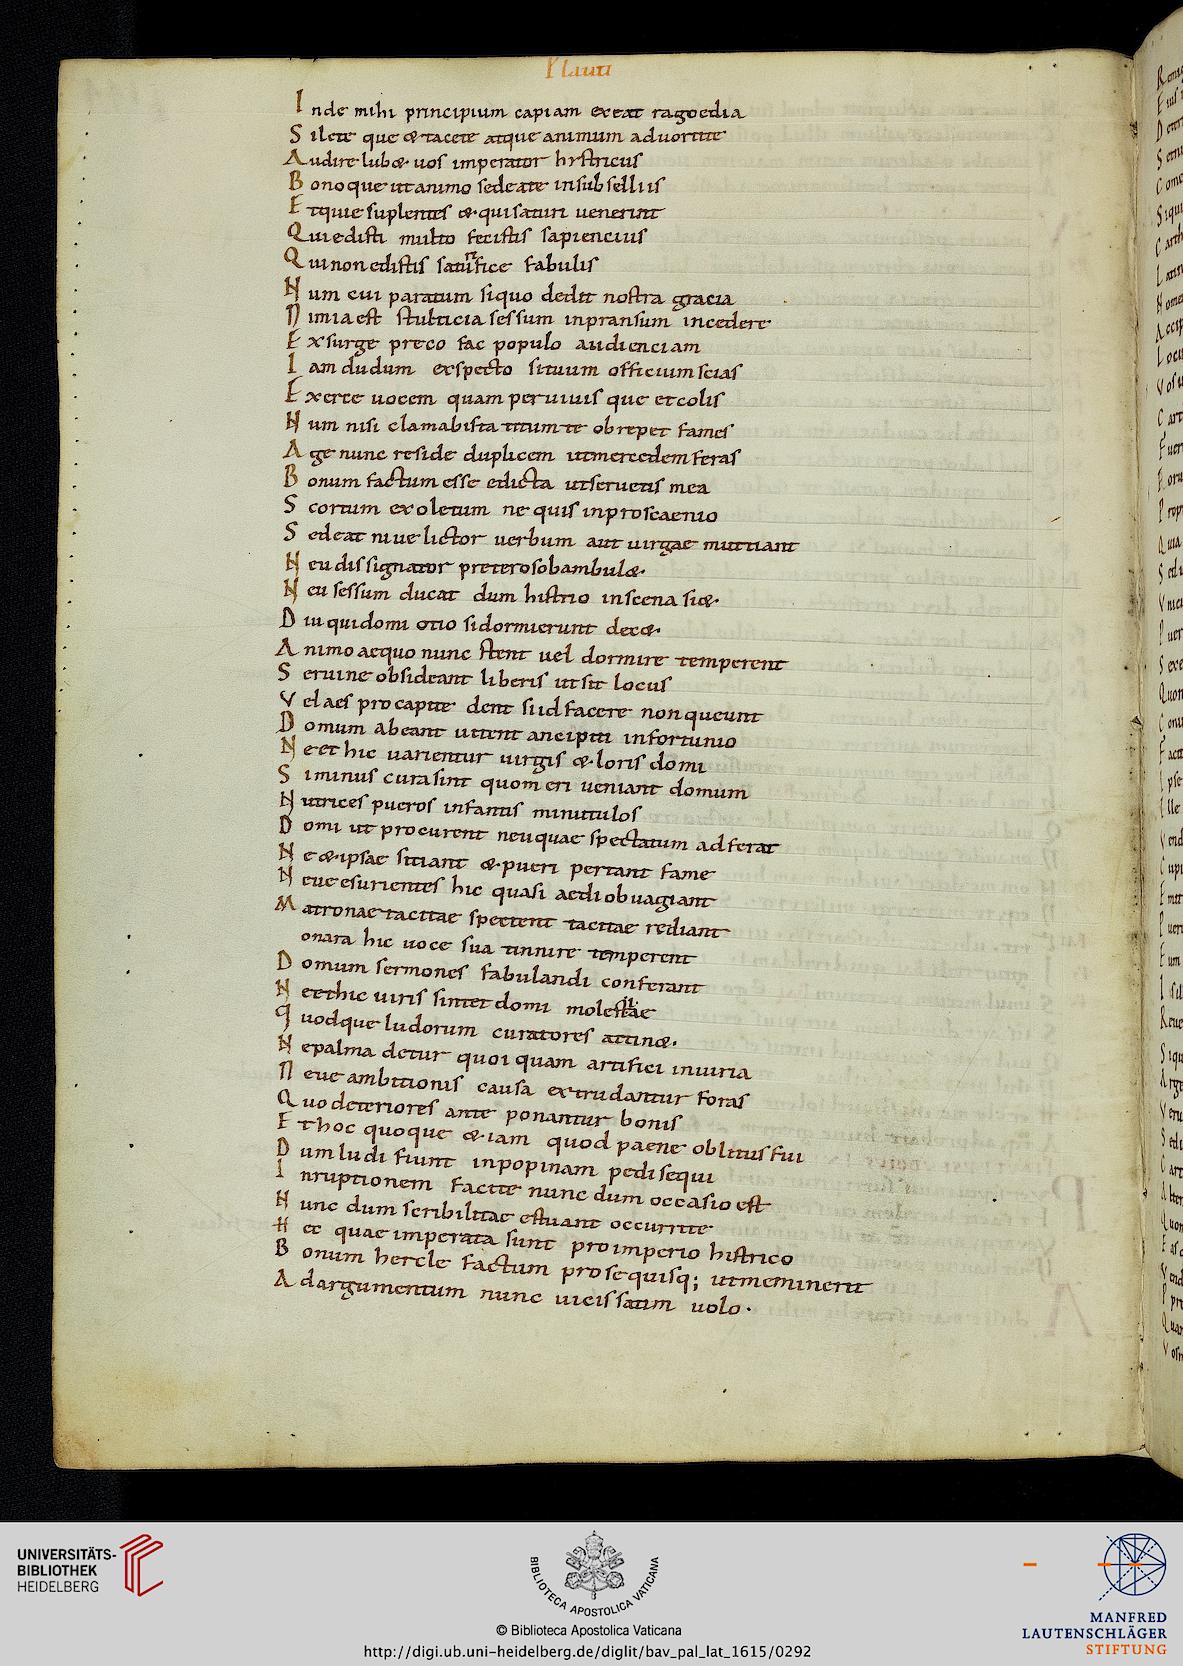 Plauti
Inde mihi principium capiam exeat ragoedia
Silete que & tacete atque animum aduortite
Audire lub& uos imperator histricus
Bonoque ut animo sedeate in subselliis
Et quie suplentes & qui saturi uenerint
Qui edisti multo fecistis sapiencius
Qui non edistis fabulis
Num cui paratum siquo dedit nostra gracia
Nimia est stulticia sessum inpransum incedere
Exsurge preco fac populo audienciam
Iam dudum exspecto situum officium scias
Exerce uocem quam per uiuis que et colis
Num nisi clamabis ta titum te obrepet fames
Age nunc reside duplicem ut mercedem feras
Bonum factum esse edicta ut seruetis mea
Scortum exoletum ne quis in proscaenio
Sedeat niue lictor uerbum aut uirgae muttiant
Neu dissignator preter osobambul&.
Neu sessum ducat dum histrio in scena si&.
Diu qui domi otio si dormierunt dec&.
Animo aequo nunc stent uel dormire temperent
Seruine obsideant liberis ut sit locus
Vel aes pro capite dent si id facere non queunt
Domum abeant uitent ancipiti infortunio
Ne et hic uarientur uirgis & loris domi
Si minus cura sint quom eri ueniant domum
Nutrices pueros infantis minutulos
Domi ut procurent neu quae spectatum adferat
Ne & ipsae sitiant & pueri pertant fame
Neue esurientes hic quasi aedi obuagiant
Matronae tacitae spectent tacitae rediant
onara hic uoce sua tinnire temperent
Domum sermones fabulandi conferant
Ne et hic uiris sintet domi molestiae
Quodque ludorum curatores attin&.
Ne palma detur quoiquam artifici iniuria
Neue ambitionis causa extrudantur foras
Quo deteriores ante ponantur bonis
Et hoc quoque & iam quod paene oblitus fui
Dum ludi fiunt in popinam pedisequi
Inruptionem facite nunc dum occasio est
Nunc dum scribilitae estuant occurrite
Hec quae imperata sunt pro imperio histrico
Bonum hercle factum pro se quisq; ut meminerit
Ad argumentum nunc uicissatim uolo.
UNIVERSITÄTS-
BIBLIOTHEK
HEIDELBERG
BIBLIOTECA APOSTOLICA VATICANA
© Biblioteca Apostolica Vaticana
http://digi.ub.uni-heidelberg.de/diglit/bav_pal_lat_1615/0292
MANFRED
LAUTENSCHLÄGER
STIFTUNG